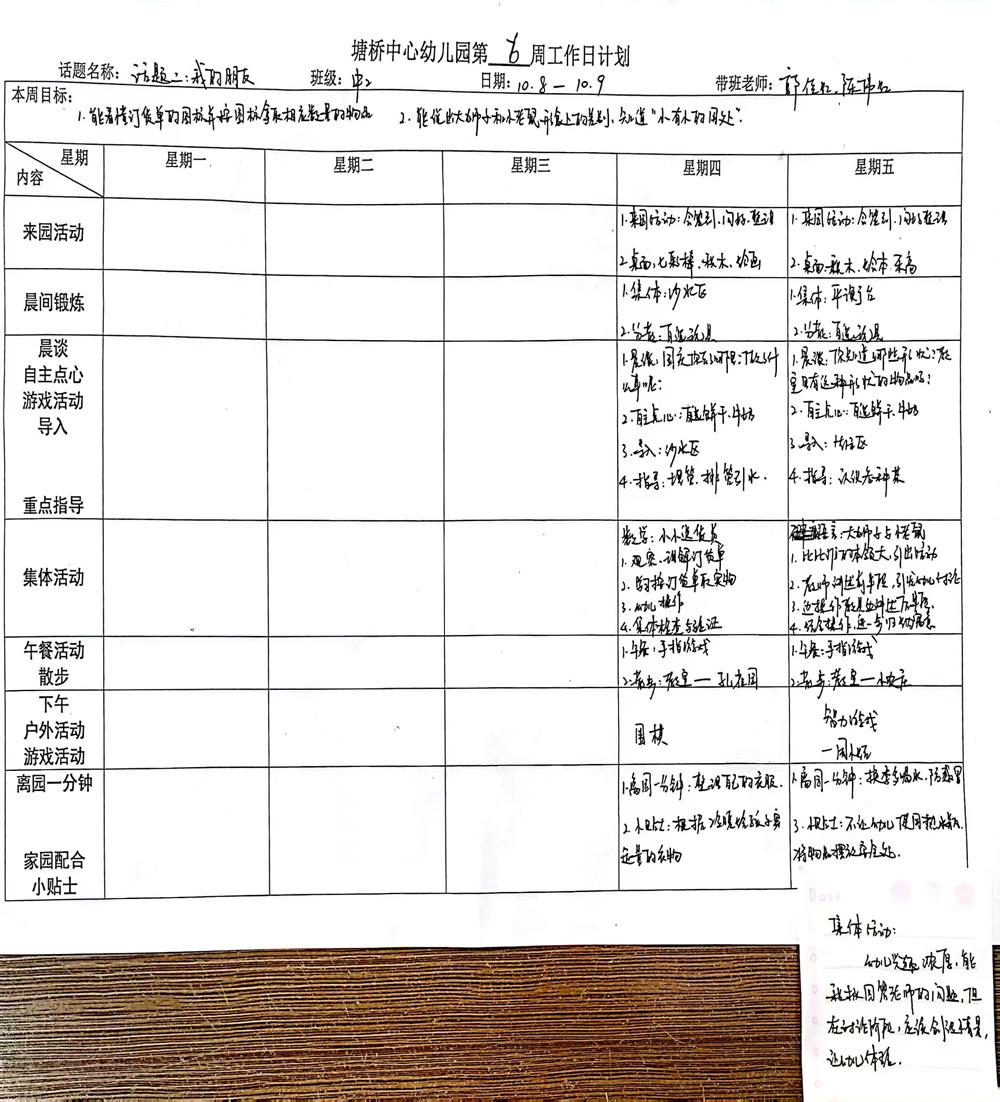 塘桥中心幼儿园第 6 周工作日计划
话题名称：话题二：我的朋友 班级：中2 日期：10.8 — 10.9 带班老师：
本周目标：
1.能看懂订货单的图标并按图标拿取相应数量的物品 2.能说出大狮子和小老鼠形象上的差别，知道“小有小的用处”.
星期 内容 星期一 星期二 星期三 星期四 星期五
来园活动
1.来园活动：会签到.问好.整理
2.桌面：七彩棒.积木.绘画
1.来园活动：会签到.问好整理
2.桌面：积木.绘本.乐高
晨间锻炼
1.集体：沙水区
2.分散：自选玩具
1.集体：平衡台
2.分散：自选玩具
晨谈
自主点心
游戏活动
导入
重点指导
1.晨谈：国庆
2.自主点心：自选饼干.牛奶
3.导入：沙水区
4.指导：埋管.排管引水.
1.晨谈：你知道哪些形状？教
室里有这种形状的物品吗？
2.自主点心：自选饼干.牛奶
3.导入：
4.指导：认识各种菜
集体活动
数学：小小送货员
1.观察.理解订货单
2.按订货单取实物
3.幼儿操作
4.集体检查与验证
语言：大狮子与小老鼠
1.比比谁的本领大，引出活动
2.教师讲述前半段，引发幼儿讨论
3.边操作教具边讲述后半段.
4.结合操作，进一步
午餐活动
散步
1.午餐：手指游戏
2.散步：教室 —
1.午餐：手指游戏
2.散步：教室 — 小农庄
下午
户外活动
游戏活动
围棋
智力游戏
离园一分钟
家园配合
小贴士
1.离园一分钟：整理自己的衣服.
2.小贴士：根据冷暖给孩子穿
适量的衣物
1.离园一分钟：换季多喝水，防感冒
3.小贴士：不让幼儿使用热水瓶.
将物品摆放安全处.
集体活动：
幼儿兴趣浓厚，能
积极回答老师的问题，但
在讨论阶段，应该创设情景，
让幼儿体验.